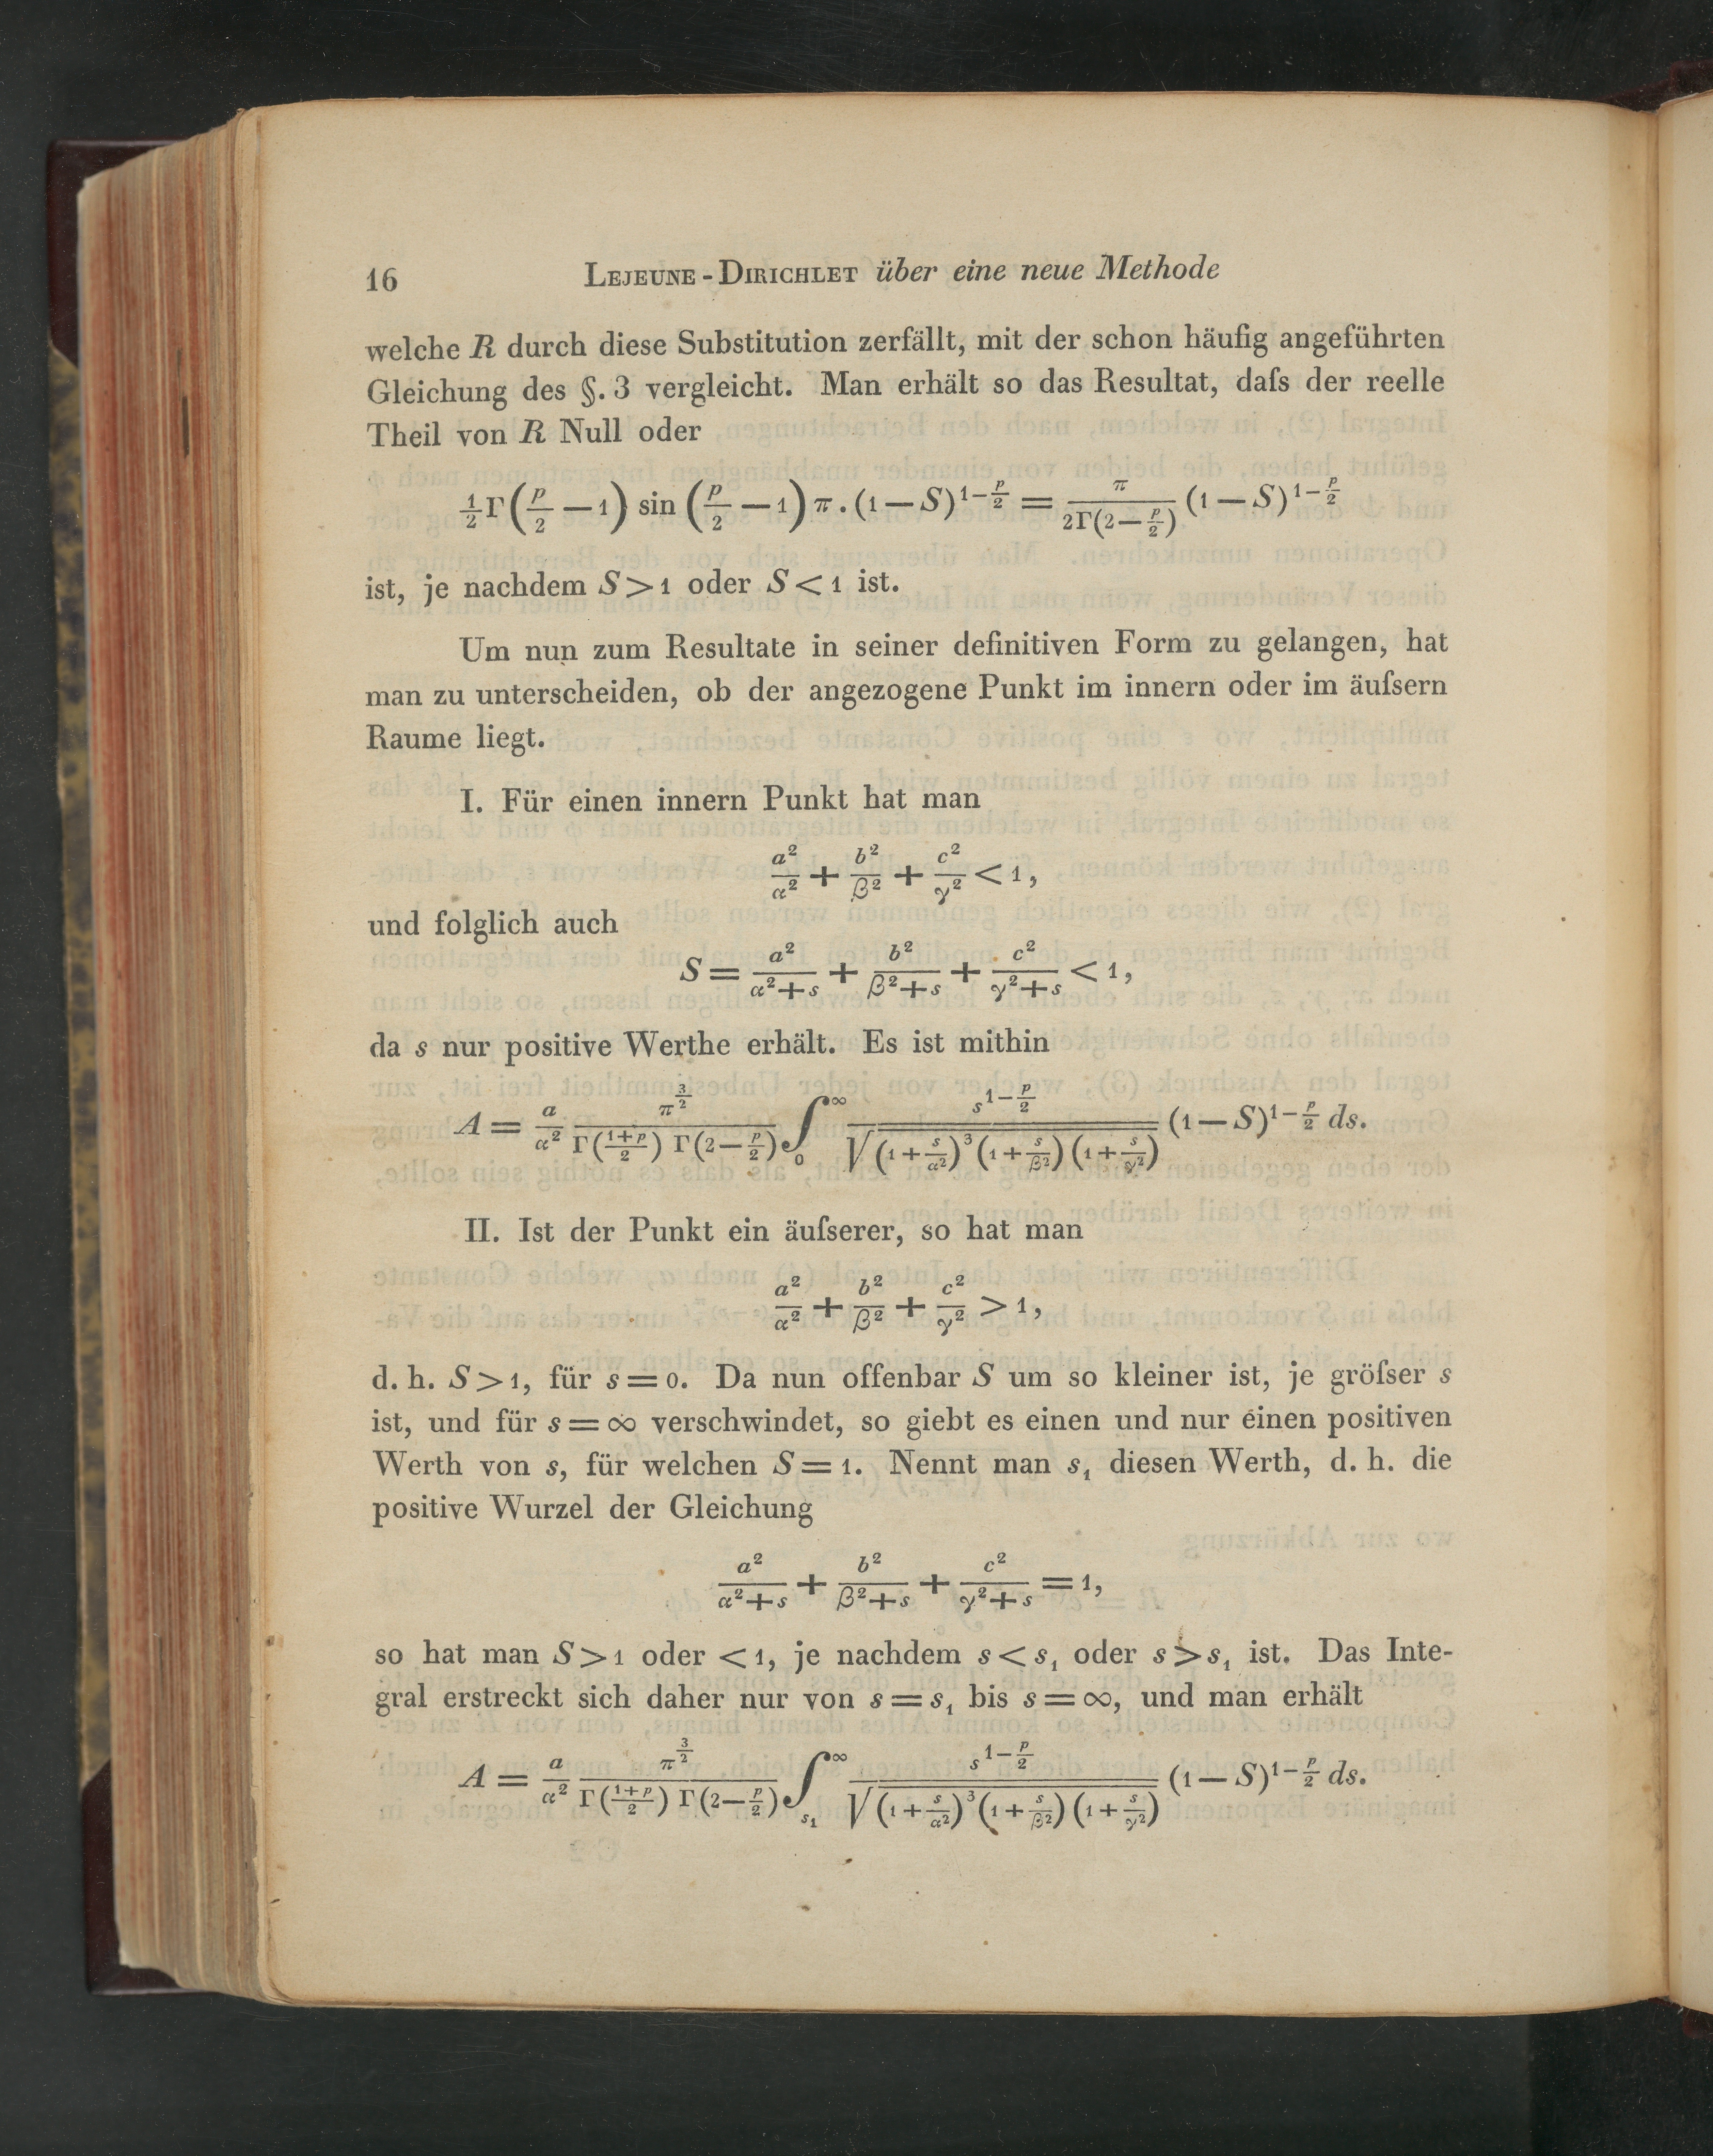 16 LEJEUNE-DIRICHLET über eine neue Methode
welche R durch diese Substitution zerfällt, mit der schon häufig angeführten
Gleichung des §. 3 vergleicht. Man erhält so das Resultat, daſs der reelle
Theil von R Null oder
½Γ(p/2 − 1) sin (p/2 − 1) π . (1 − S)^{1−p/2} = π/(2Γ(2−p/2)) (1 − S)^{1−p/2}
ist, je nachdem S > 1 oder S < 1 ist.
Um nun zum Resultate in seiner definitiven Form zu gelangen, hat
man zu unterscheiden, ob der angezogene Punkt im innern oder im äuſsern
Raume liegt.
I. Für einen innern Punkt hat man
a²/α² + b²/β² + c²/γ² < 1,
und folglich auch
S = a²/(α²+s) + b²/(β²+s) + c²/(γ²+s) < 1,
da s nur positive Werthe erhält. Es ist mithin
A = a/α² π^{3/2}/(Γ((1+p)/2) Γ(2−p/2)) ∫_0^∞ s^{1−p/2}/√((1+s/α²)³(1+s/β²)(1+s/γ²)) (1 − S)^{1−p/2} ds.
II. Ist der Punkt ein äuſserer, so hat man
a²/α² + b²/β² + c²/γ² > 1,
d. h. S > 1, für s = 0. Da nun offenbar S um so kleiner ist, je gröſser s
ist, und für s = ∞ verschwindet, so giebt es einen und nur éinen positiven
Werth von s, für welchen S = 1. Nennt man s₁ diesen Werth, d. h. die
positive Wurzel der Gleichung
a²/(α²+s) + b²/(β²+s) + c²/(γ²+s) = 1,
so hat man S > 1 oder < 1, je nachdem s < s₁ oder s > s₁ ist. Das Inte-
gral erstreckt sich daher nur von s = s₁ bis s = ∞, und man erhält
A = a/α² π^{3/2}/(Γ((1+p)/2) Γ(2−p/2)) ∫_{s₁}^∞ s^{1−p/2}/√((1+s/α²)³(1+s/β²)(1+s/γ²)) (1 − S)^{1−p/2} ds.